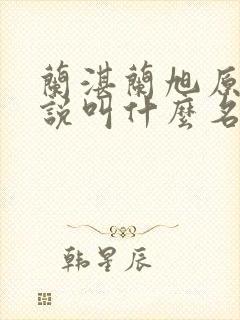 蘭湛蘭旭原
說叫什麼名
韩星辰